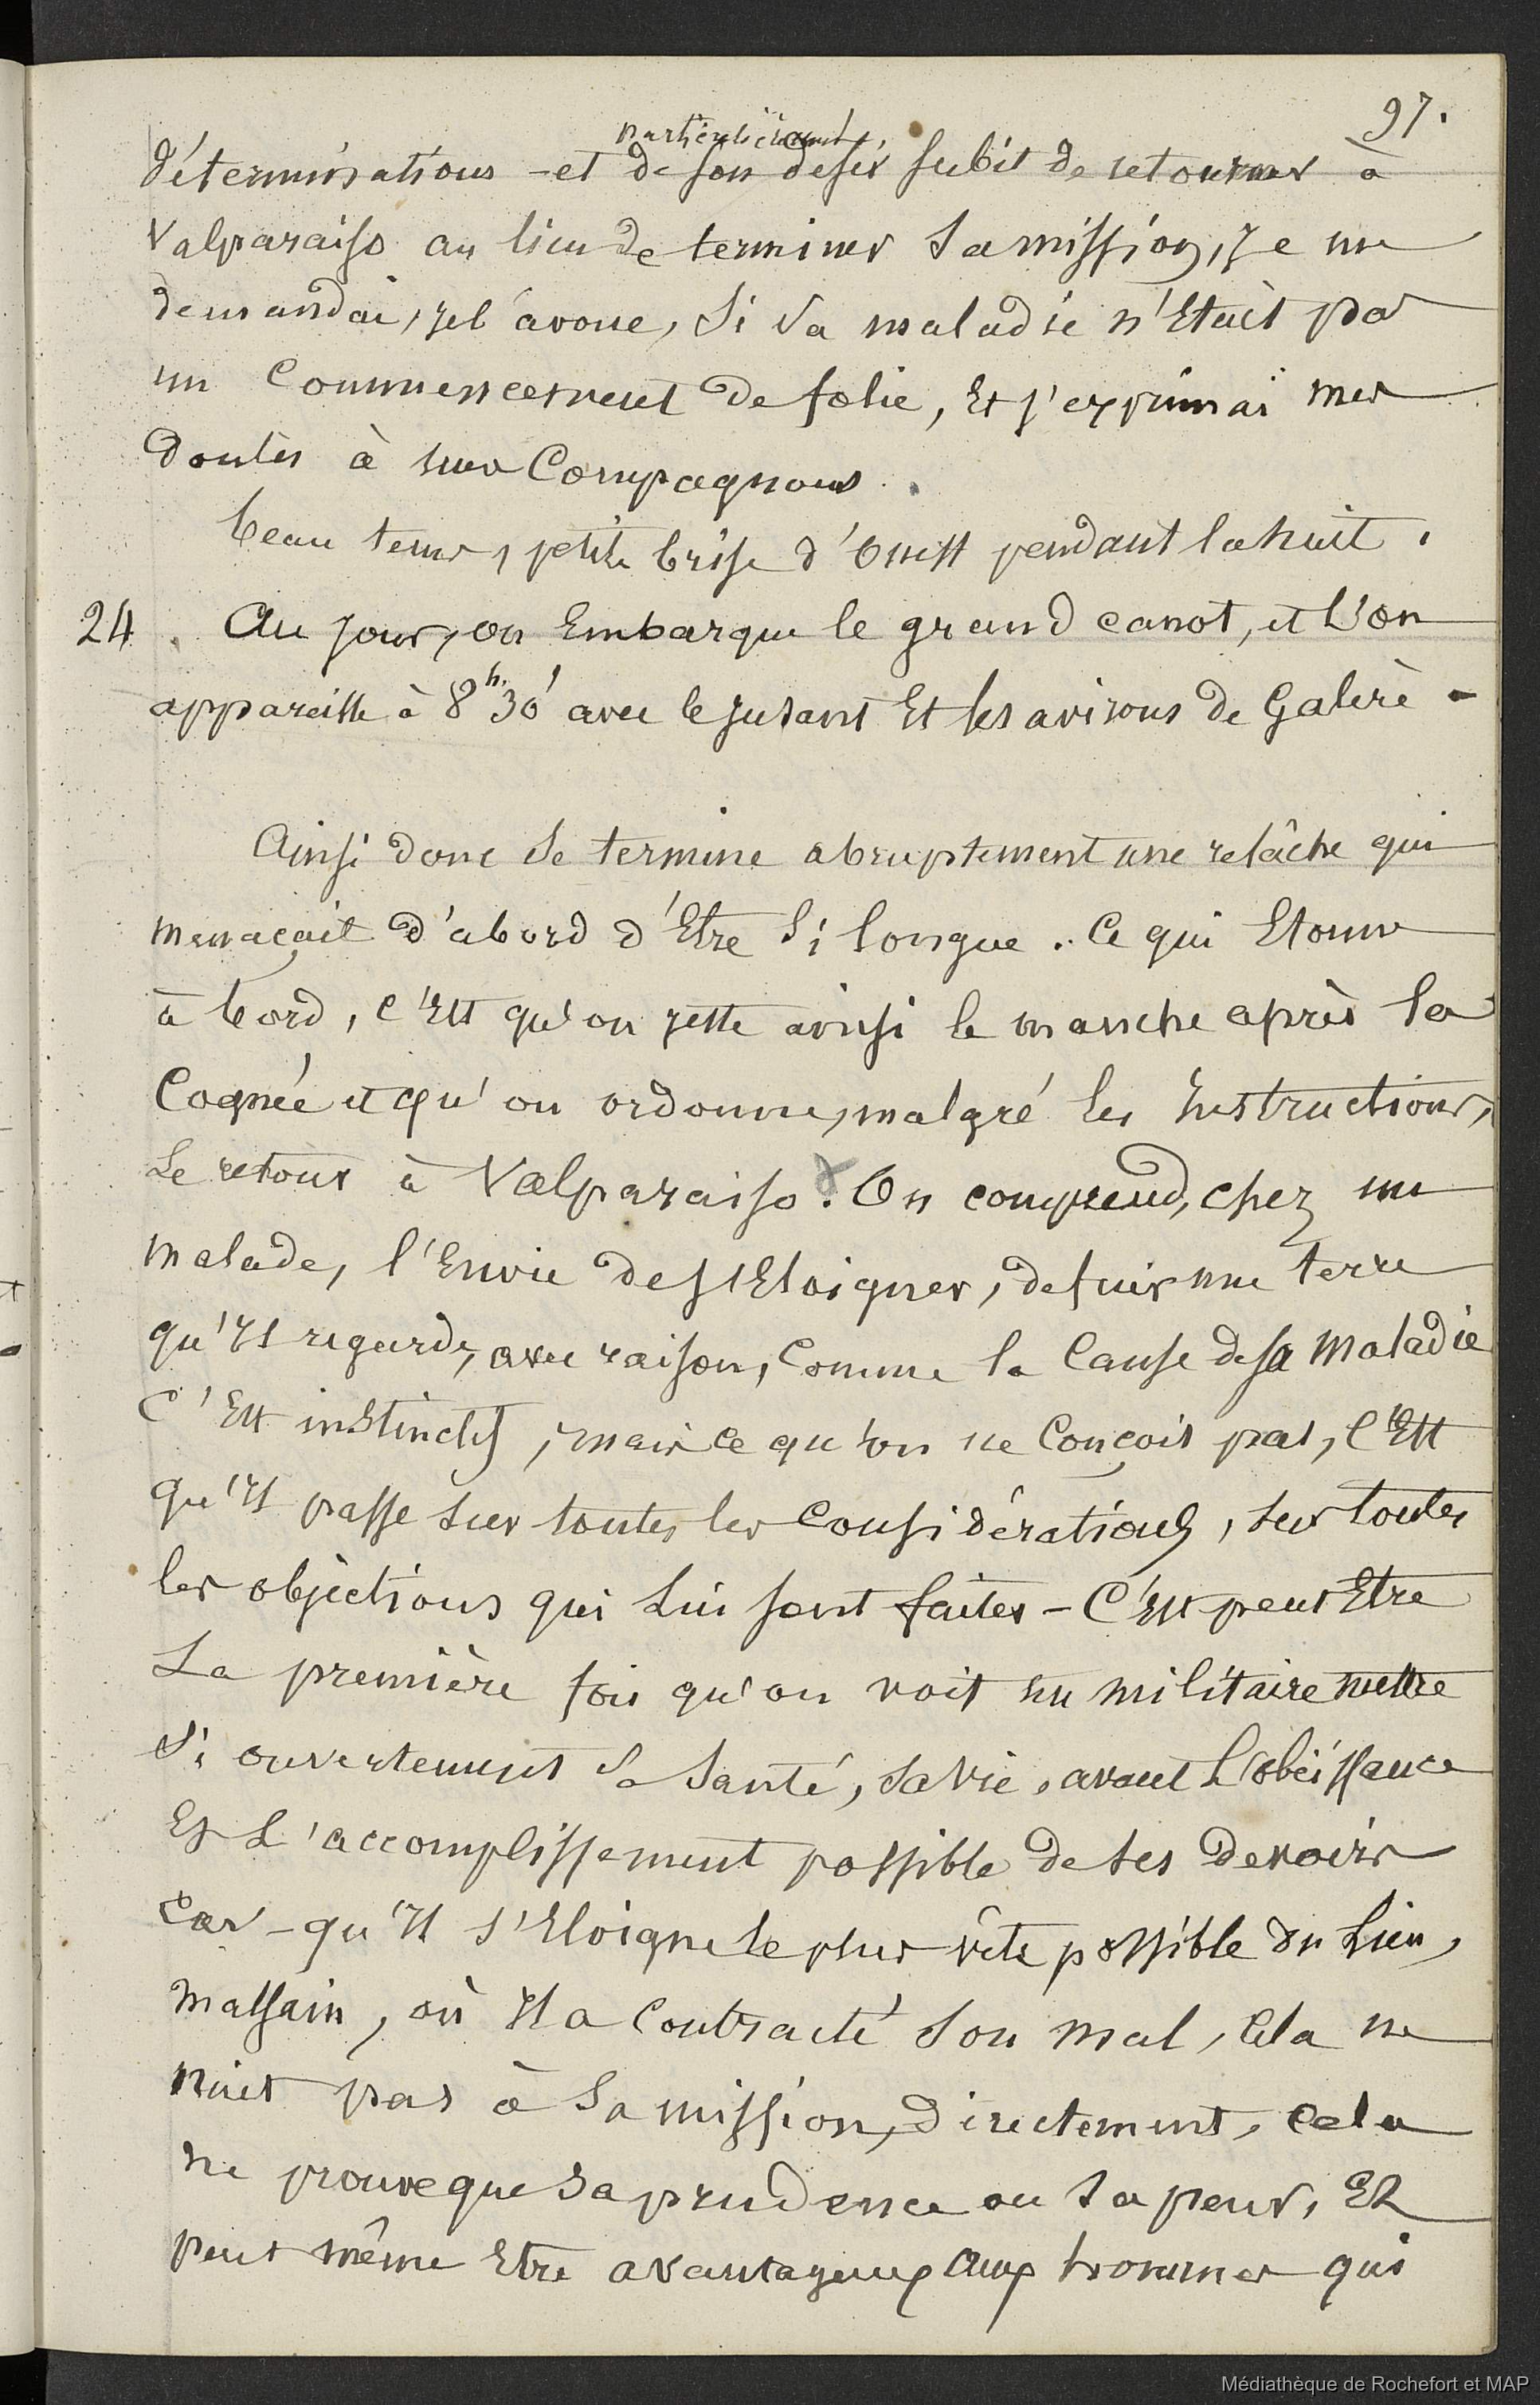 97.
particulièrement
déterminations - et de son desir subit de retourner à
Valparaiso au lieu de terminer sa mission, je me
demandai, je l'avoue, si sa maladie n'était pas
un commencement de folie, et j'exprimai mes
doutes à mes compagnons.
beau tems, petite brise d'ouest pendant la nuit.
24. Au jour, on embarque le grand canot, et l'on
appareille à 8h.30' avec le jusant et les avirons de galère -
Ainsi donc se termine abruptement une relâche qui
menaçait d'abord d'être si longue. Ce qui étonne
à bord, c'est qu'on jette ainsi le manche après la
cognée et qu'on ordonne, malgré les instructions,
le retour à Valparaiso. On comprend, chez un
malade, l'envie de s'éloigner, de fuir une terre
qu'il regarde, avec raison, comme la cause de sa maladie
C'est instinctif, mais ce qu'on ne conçoit pas, c'est
qu'il passe sur toutes les considérations, sur toutes
les objections qui lui sont faites - C'est peut être
la première fois qu'on voit un militaire mettre
si ouvertement sa santé, sa vie, avant l'obéissance
et l'accomplissement possible de ses devoirs
car - qu'il s'éloigne le plus vite possible du lieu,
malsain, où il a contracté son mal, cela ne
nuit pas à sa mission, directement, cela
ne prouve que sa prudence ou sa peur, et
peut même être avantageux aux hommes qui
Médiathèque de Rochefort et MAP